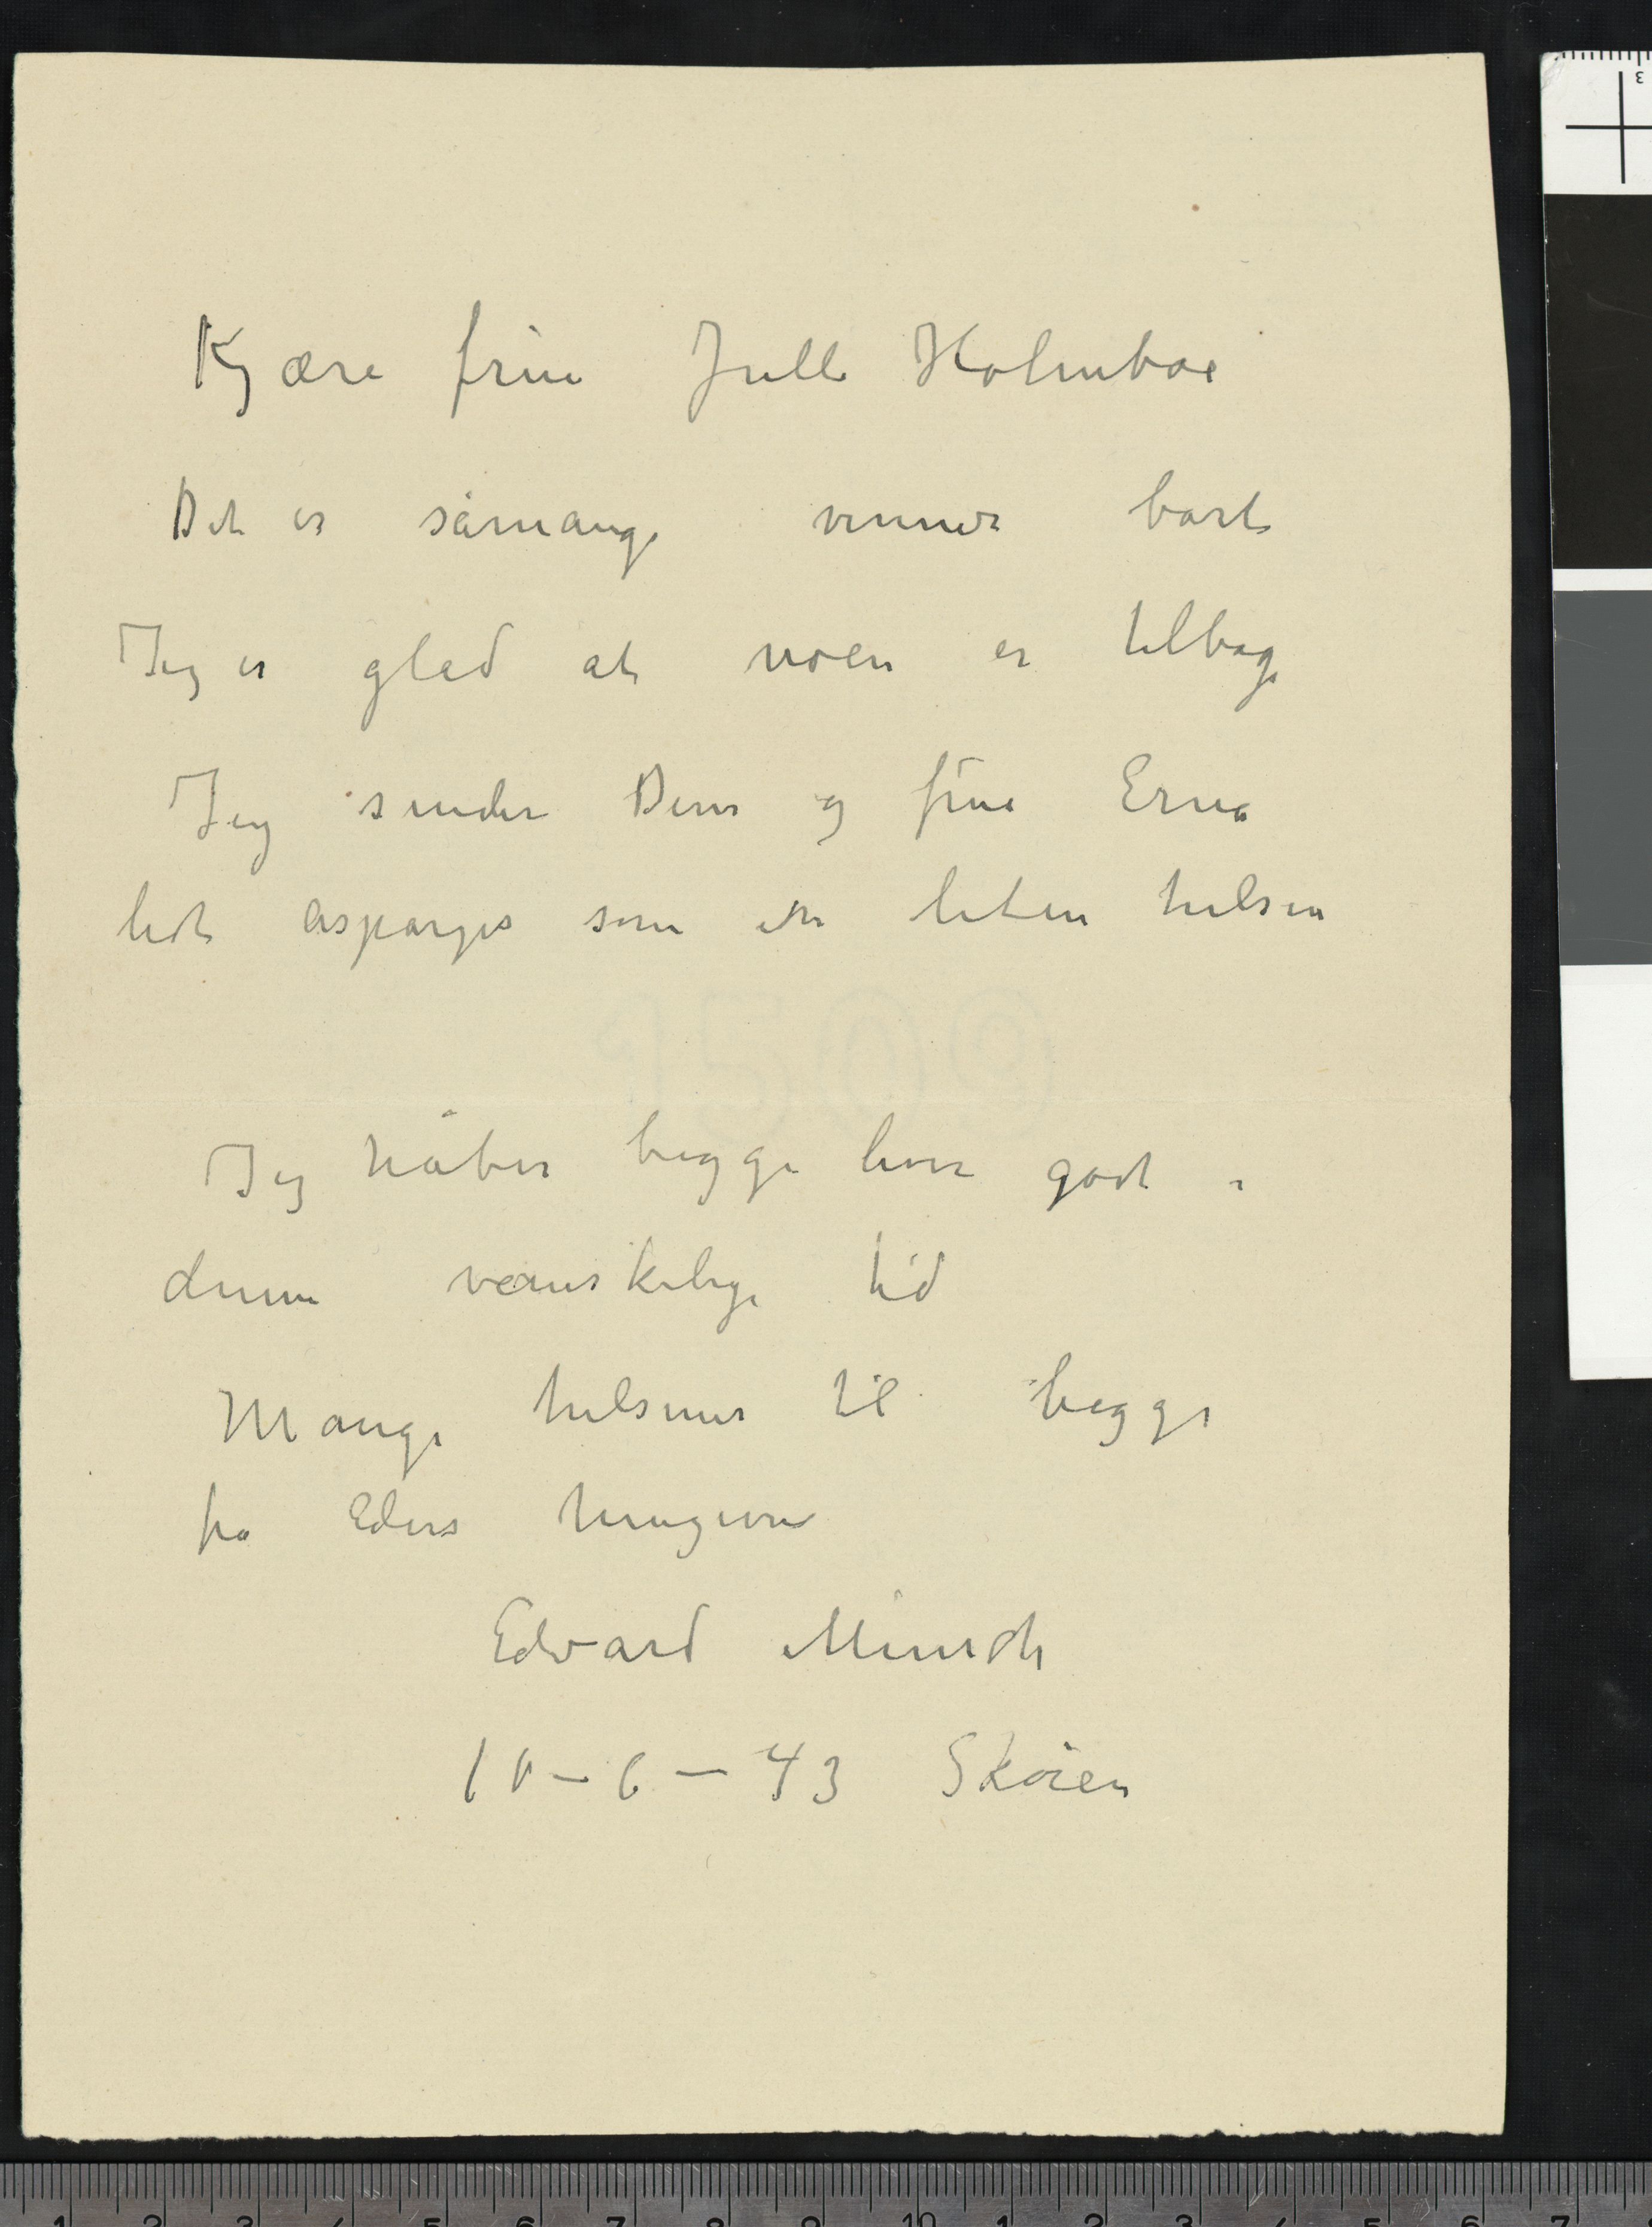 Kjære frue Julle Holmboe
Det er såmange venner bort
Jeg er glad at noen er tilbage
Jeg sender Dem og frue Erna
lidt asparges som en liten hilsen
Jeg håber begge lever godt i
denne vanskelige tid
Mange hilsener til begge
fra Eders hengivne
Edvard Munch
10–6–43 Skøien